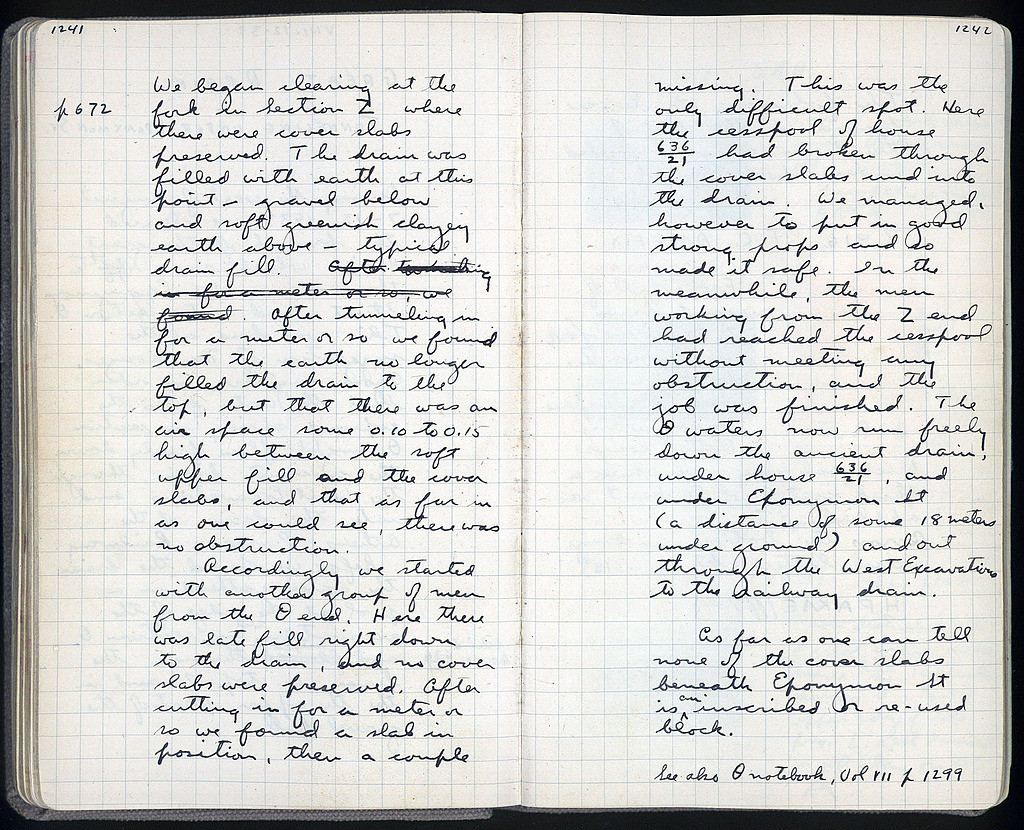 1241
We began clearing at the
p 672 fork in Section Z where
there were cover slabs
preserved. The drain was
filled with earth at this
point – gravel below
and soft greenish clayey
earth above – typical
drain fill. After tunneling
in for a meter or so, we
found. After tunneling in
for a meter or so we found
that the earth no longer
filled the drain to the
top, but that there was an
air space some 0.10 to 0.15
high between the soft
upper fill and the cover
slabs, and that as far in
as one could see, there was
no obstruction.
Accordingly we started
with another group of men
from the Θ end. Here there
was late fill right down
to the drain, and no cover
slabs were preserved. After
cutting in for a meter or
so we found a slab in
position, then a couple
1242
missing. This was the
only difficult spot. Here
the cesspool of house
636/21 had broken through
the cover slabs and into
the drain. We managed,
however to put in good
strong props and so
made it safe. In the
meanwhile, the men
working from the Z end
had reached the cesspool
without meeting any
obstruction, and the
job was finished. The
Θ waters now run freely
down the ancient drain,
under house 636/21, and
under Eponymon St
(a distance of some 18 meters
under ground) and out
through the West Excavations
to the railway drain.
As far as one can tell
none of the cover slabs
beneath Eponymon St
is an inscribed or re-used
block.
See also Θ notebook, Vol VII p 1299